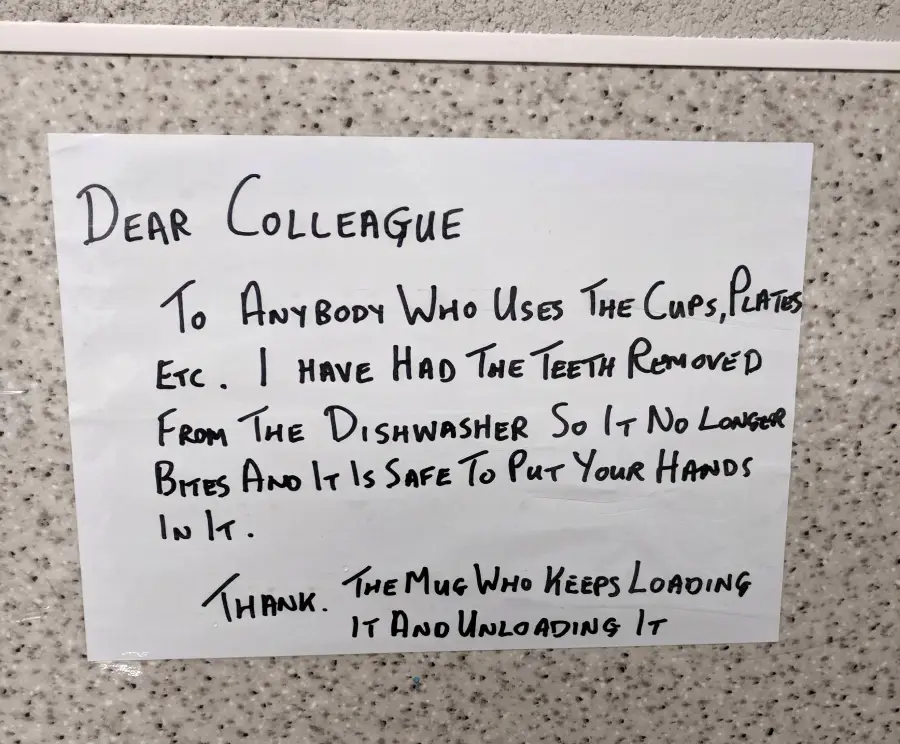 DEAR COLLEAGUE
TO ANYBODY WHO USES THE CUPS, PLATES
ETC. I HAVE HAD THE TEETH REMOVED
FROM THE DISHWASHER SO IT NO LONGER
BITES AND IT IS SAFE TO PUT YOUR HANDS
IN IT.
THANK. THE MUG WHO KEEPS LOADING
IT AND UNLOADING IT